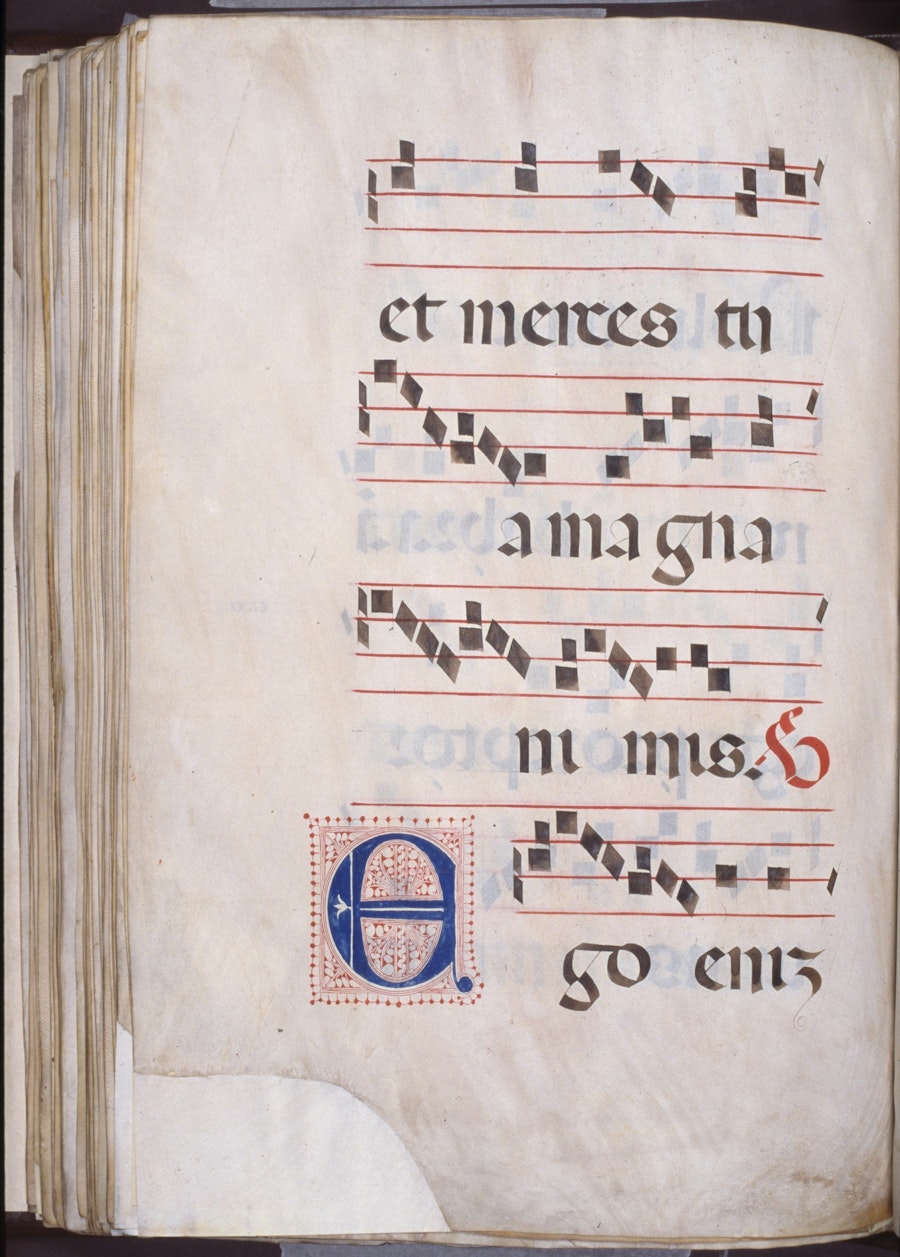 et merces tu
a magna
ni mis. ℟
Ego eniz